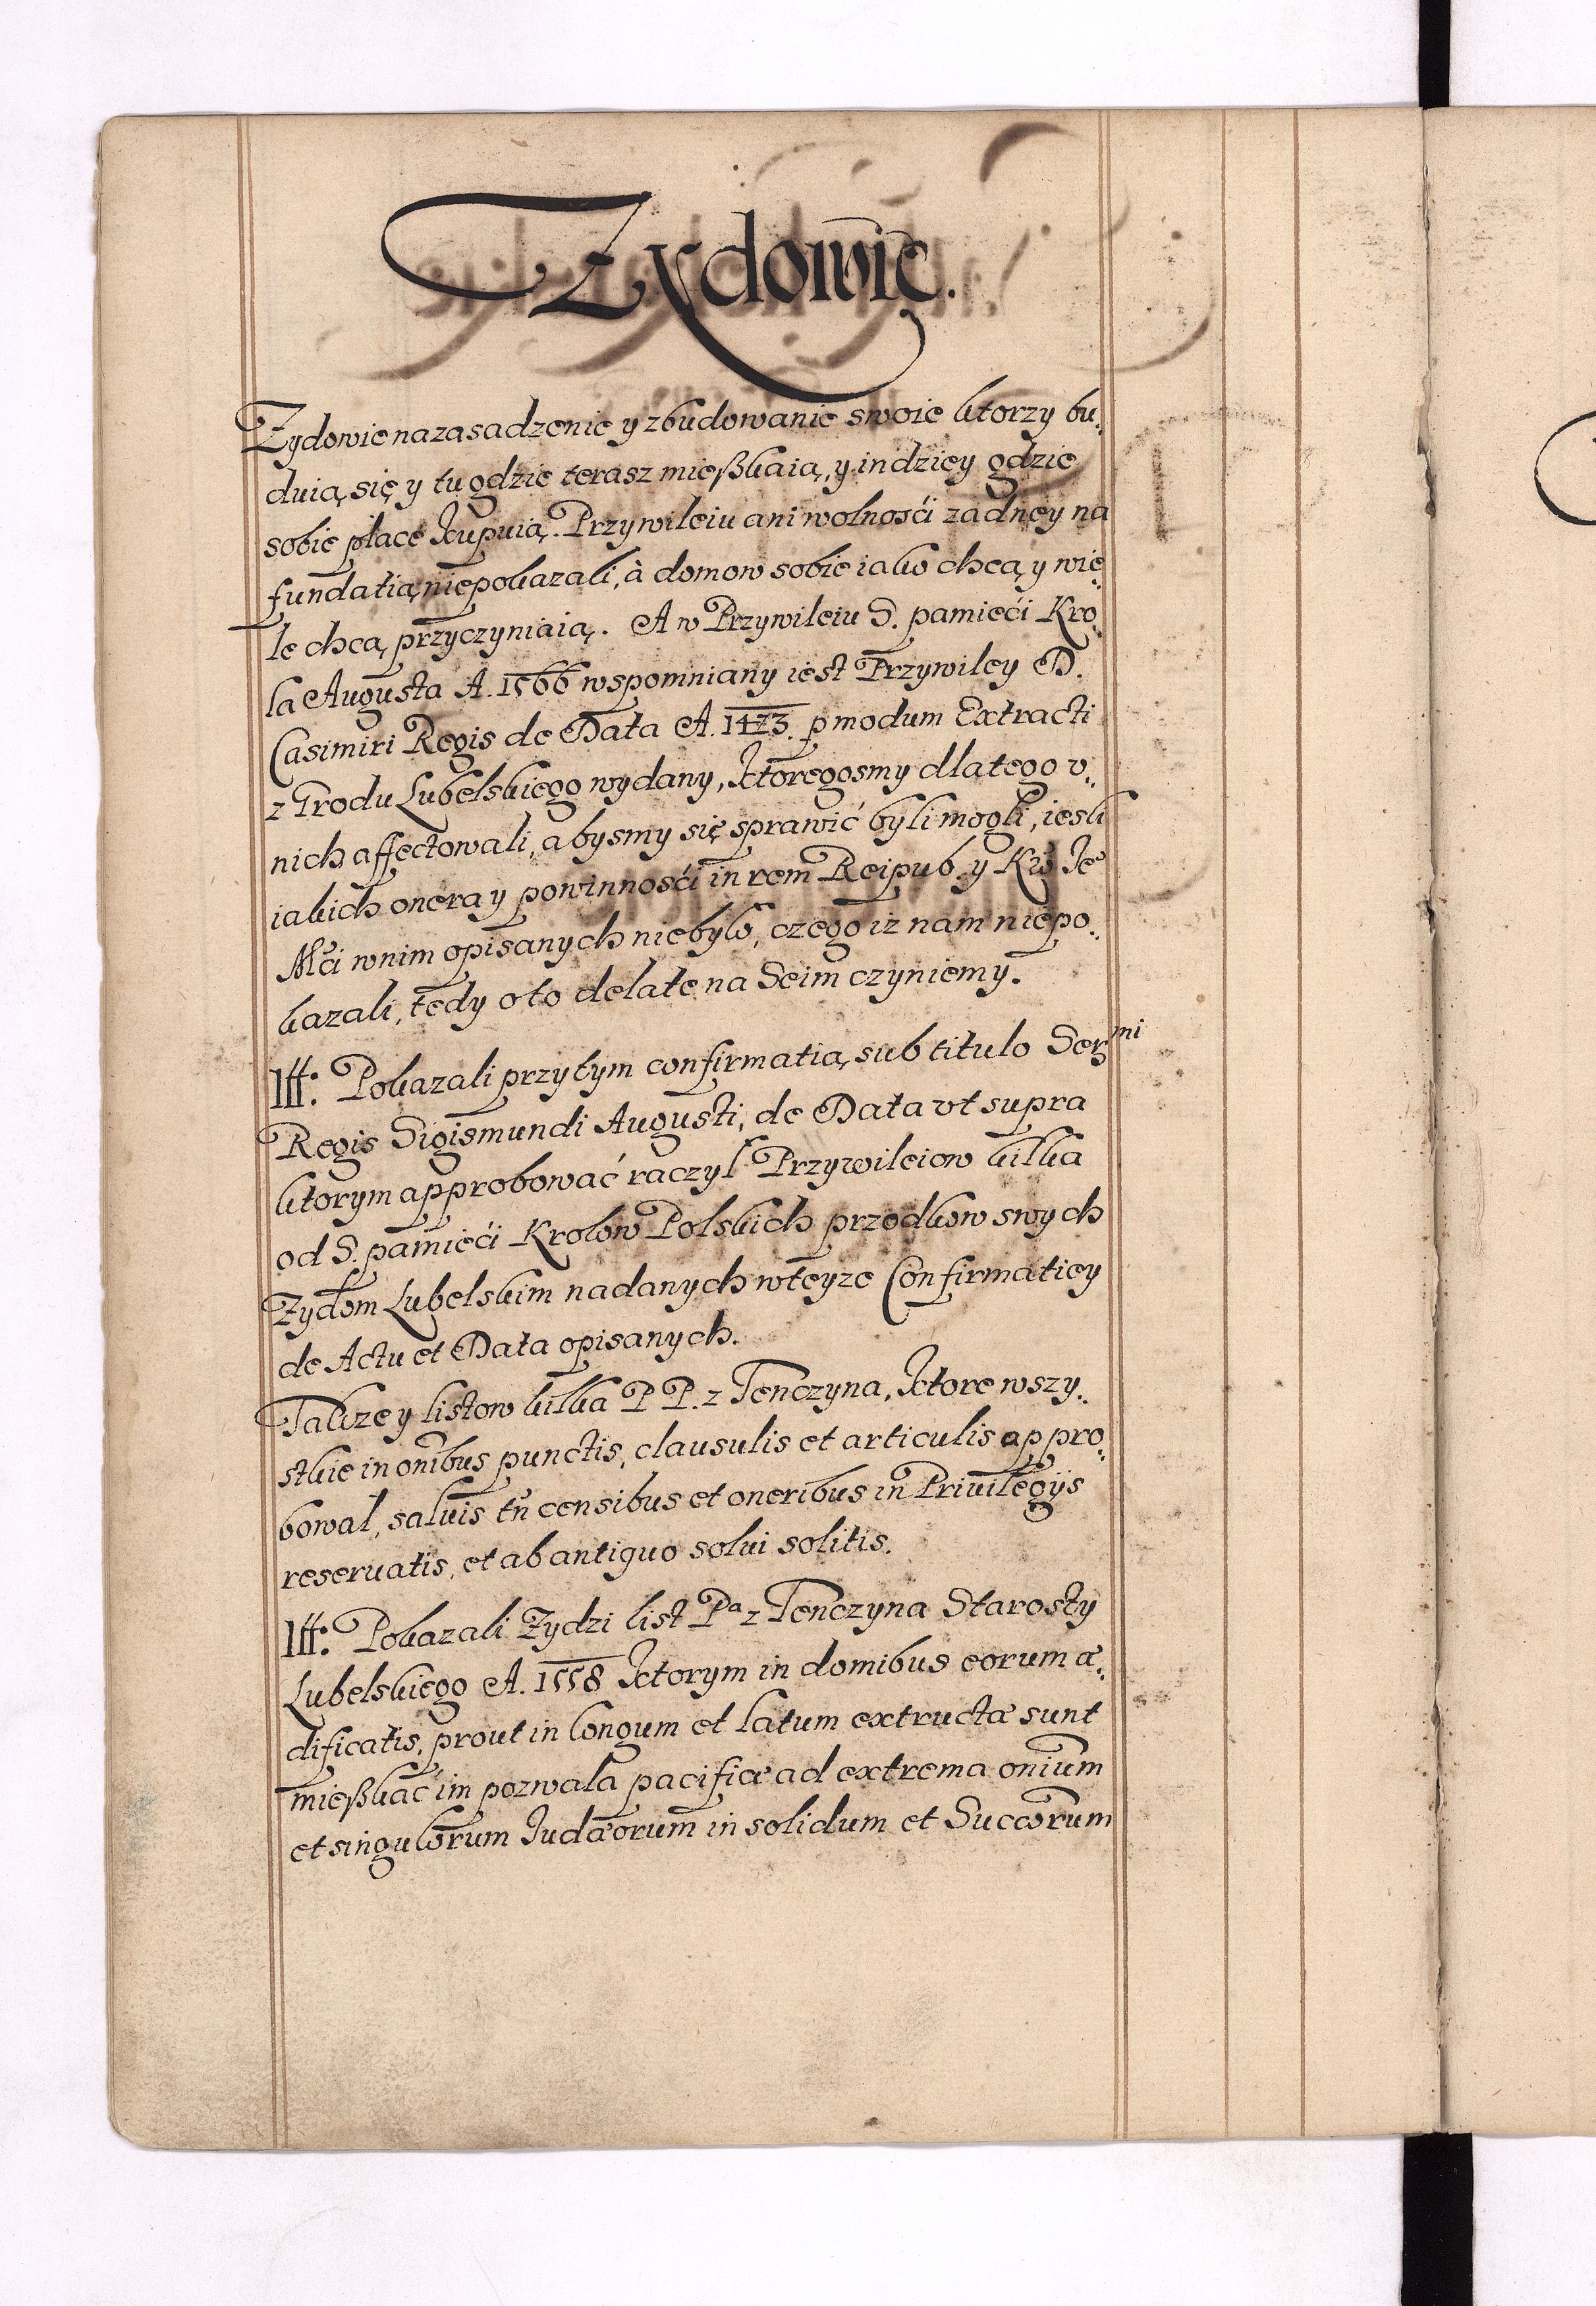 Zydowie.
Zydowie na zasadzenie y zbudowanie swoie ktorzy bu,
duią się y tu gdzie terasz mieszkaią, y indziey gdzie
sobie place kupuią. Przywileiu ani wolnosći zadney na
fundatią niepokazali, à domow sobie iako chcą y wie,
le chcą przyczyniaią. A w Przywileiu S. pamieći Kro,
la Augusta A. 1566 wspomniany iest Przywiley D.
Casimiri Regis de Data A. 1473. p modum Extracti
z Grodu Lubelskiego wydany, ktoregosmy dlatego v,
nich affectowali, abysmy się sprawić byli mogli, iesli
iakich onera y powinnosći in rem Reipub. y Kro Je
Mći wnim opisanych niebyło, czego iz nam niepo,
kazali, tedy o to delatę na Seim czyniemy.
Itt: Pokazali przytym confirmatią sub titulo Sermi
Regis Sigismundi Augusti, de Data vt supra
ktorym approbować raczył Przywileiow kilka
od S. pamieći Krolow Polskich przodkow swych
Zydom Lubelskim nadanych wteyze Confirmatiey
de Actu et Data opisanych.
Takze y listow kilka P P. z Tenczyna, ktore wszy,
stkie in onibus punctis, clausulis et articulis appro,
bowal, saluis tn censibus et oneribus in Priuilegijs
reseruatis, et ab antiquo solui solitis.
Itt: Pokazali Zydzi list Pa z Tenczyna Starosty
Lubelskiego A. 1558 ktorym in domibus eorum æ,
dificatis, prout in longum et latum extructæ sunt
mieszkać im pozwala pacifice ad extrema onium
et singulorum Judæorum in solidum et Succorum